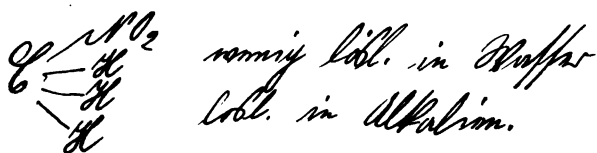 C NO2 wenig lösl. in Wasser
H
H lösl. in Alkalien.
H